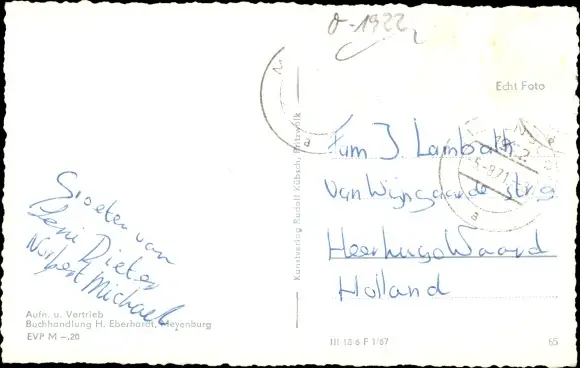 0-1922
Echt Foto
Kunstverlag Rudolf Kübsch, Pritzwalk
Groeten van
Leni Dieter
Norbert Michael
Fam J. Lambalk
van Wijngaarde str 9
HeerhugoWaard
Holland
Aufn. u. Vertrieb
Buchhandlung H. Eberhardt, Meyenburg
EVP M –,20
III 18 6 F 1/67
65